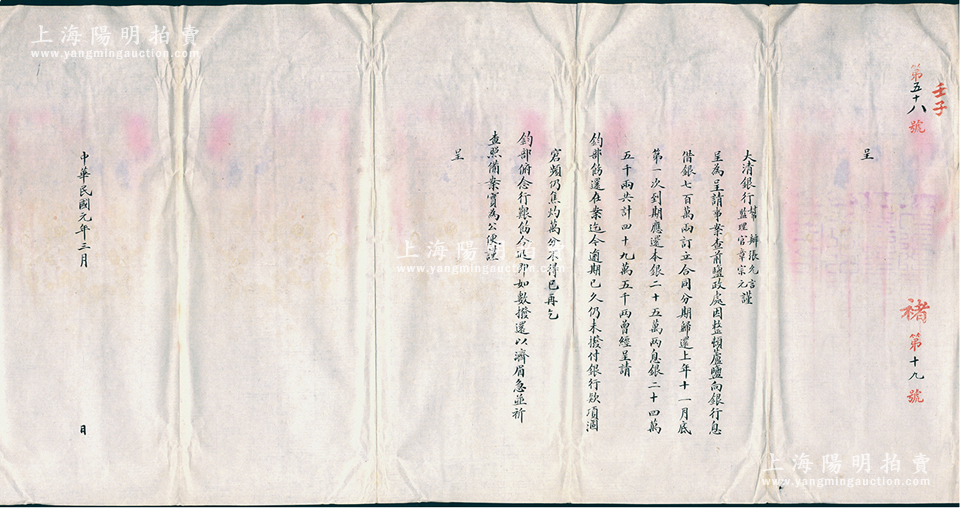 壬子
第五十八號
褚第十九號
呈
大清銀行幫辦張允言監理官章宗元謹
呈為呈請事案查前鹽政處因整頓蘆鹽向銀行息
借銀七百萬兩訂立合同分期歸還上年十一月底
第一次到期應還本銀二十五萬兩息銀二十四萬
五千兩共計四十九萬五千兩曾經呈請
鈞部飭還在案迄今逾期已久仍未撥付銀行款項涸
窘頻仍焦灼萬分不得已再乞
鈞部俯念行艱飭令該即如數撥還以濟眉急並祈
查照備案實為公便謹
呈
中華民國元年三月
日
上海陽明拍賣
www.yangmingauction.com
上海陽明拍賣
www.yangmingauction.com
上海陽明拍賣
www.yangmingauction.com